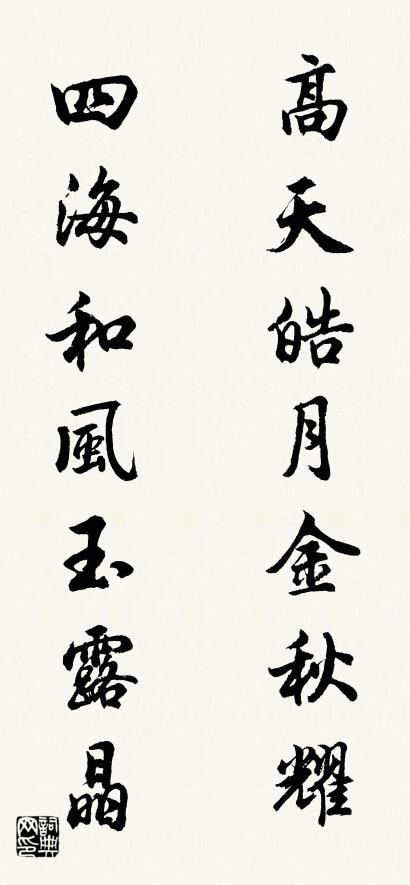 高天皓月金秋耀
四海和風玉露晶
詞典網印